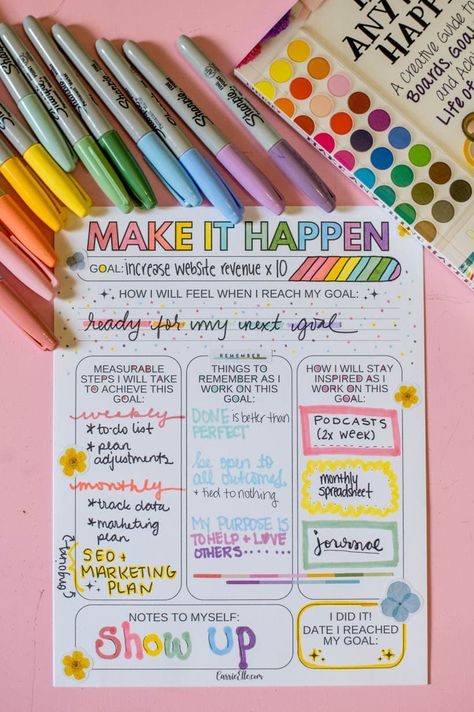 Sharpie
Sharpie
Sharpie
Sharpie
Sharpie
ANY
HAPP
A Creative Guide to
Boards, Goal
and A
Life of
MAKE IT HAPPEN
GOAL: increase website revenue x 10
HOW I WILL FEEL WHEN I REACH MY GOAL:
ready for my next goal
MEASURABLE
STEPS I WILL TAKE
TO ACHIEVE THIS
GOAL:
weekly
*to-do list
* plan
adjustments
monthly
* track data
* marketing
plan
ongoing
SEO +
MARKETING
PLAN
REMEMBER
THINGS TO
REMEMBER AS I
WORK ON THIS
GOAL:
DONE is better than
PERFECT
be open to
all outcomes
+ tied to nothing
MY PURPOSE IS
TO HELP + LOVE
OTHERS
HOW I WILL STAY
INSPIRED AS I
WORK ON THIS
GOAL:
PODCASTS
(2x week)
monthly
spreadsheet
journal
NOTES TO MYSELF:
Show UP
I DID IT!
DATE I REACHED
MY GOAL:
CarrieElle.com